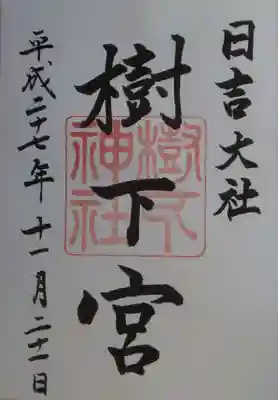 日吉大社
樹下宮
樹下神社
平成二十七年十一月二十一日